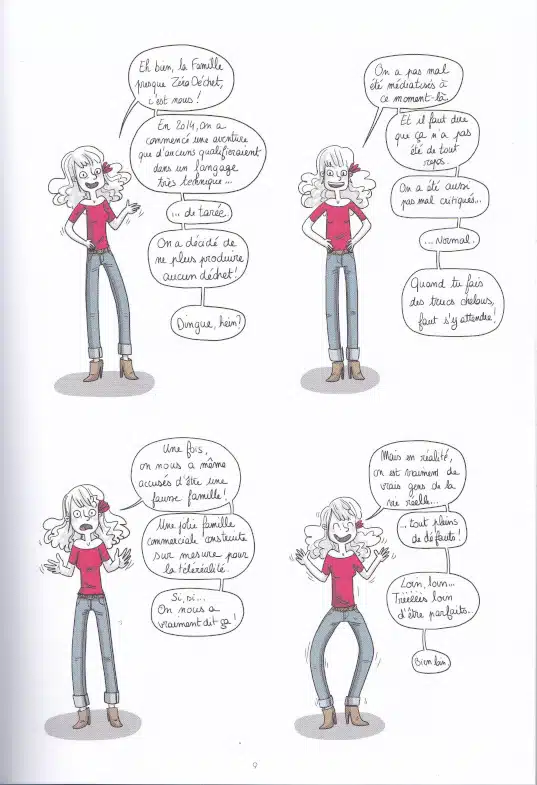 Eh bien, la Famille
presque Zéro Déchet,
c'est nous !
En 2014, on a
commencé une aventure
que d'aucuns qualifieraient
dans un langage
très technique...
... de tarée.
On a décidé de
ne plus produire
aucun déchet !
Dingue, hein ?
On a pas mal
été médiatisés à
ce moment-là.
Et il faut dire
que ça n'a pas
été de tout
repos.
On a été aussi
pas mal critiqués...
... Normal.
Quand tu fais
des trucs chelous,
faut s'y attendre !
Une fois,
on nous a même
accusés d'être une
fausse famille !
Une jolie famille
commerciale construite
sur mesure pour
la téléréalité.
Si, si...
On nous a
vraiment dit ça !
Mais en réalité,
on est vraiment de
vrais gens de la
vie réelle...
... tout pleins
de défauts !
Loin, loin...
Trèèèès loin
d'être parfaits...
Bien loin
9